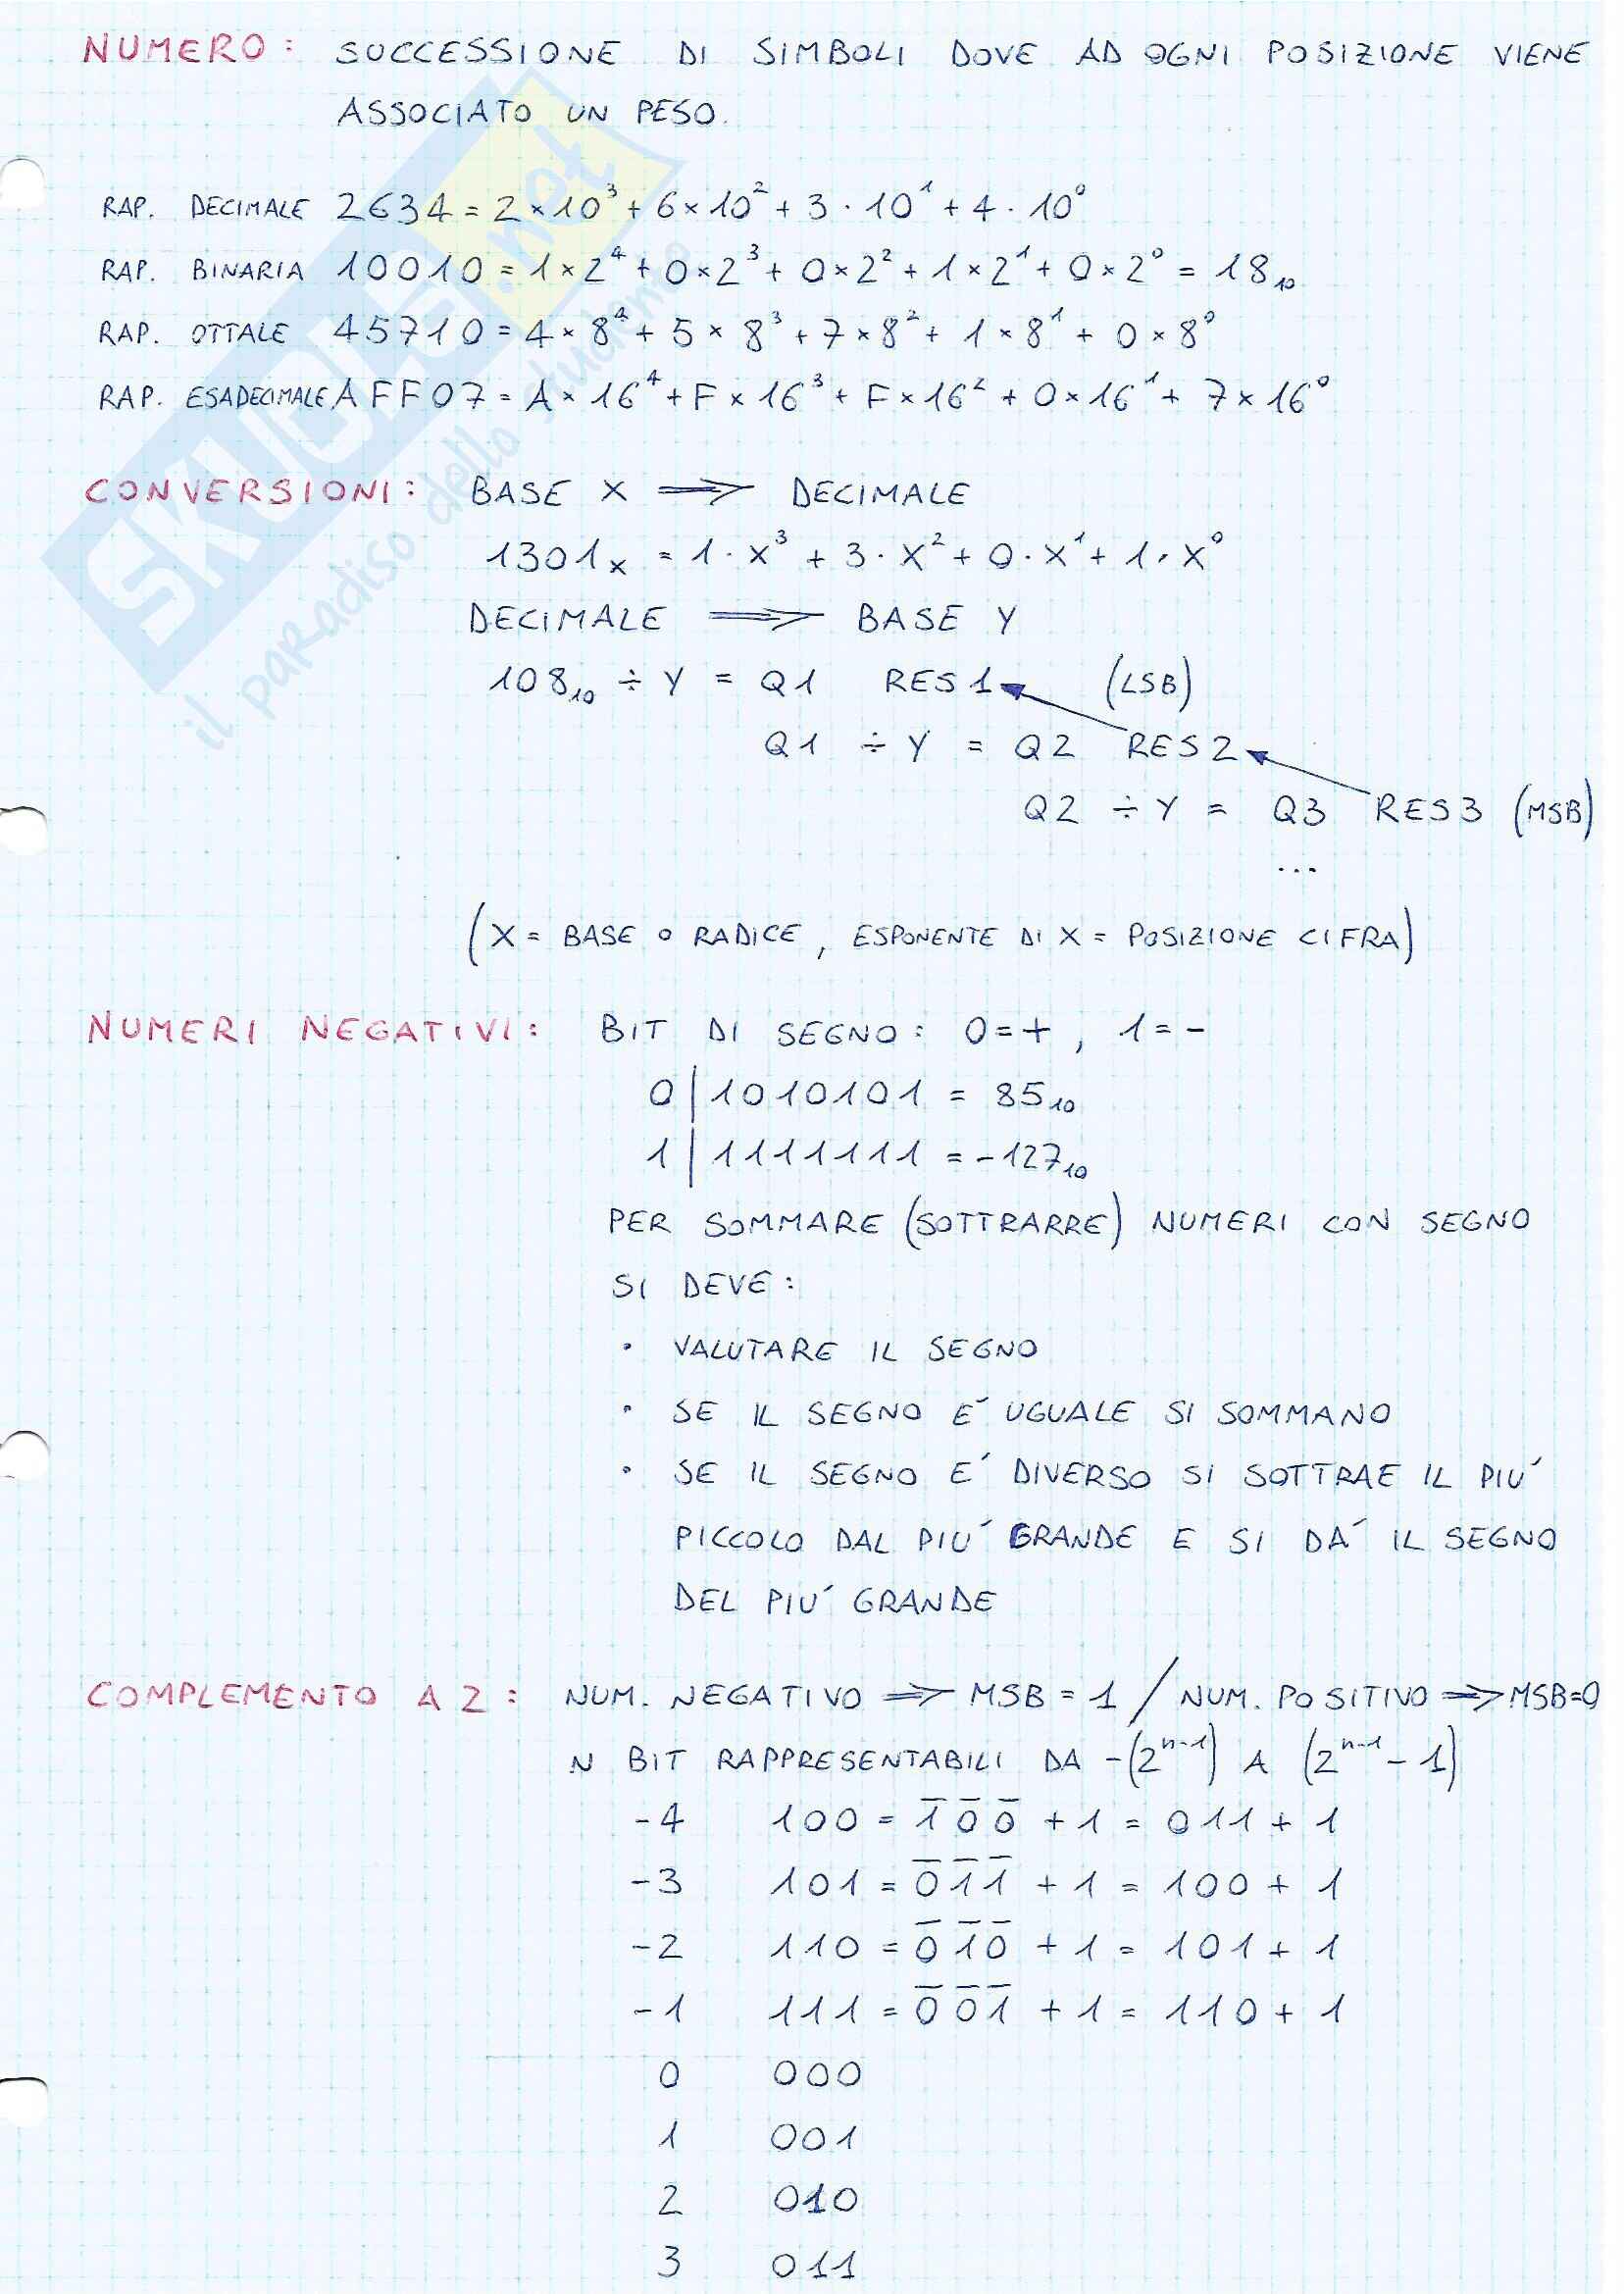 NUMERO: SUCCESSIONE DI SIMBOLI DOVE AD OGNI POSIZIONE VIENE
ASSOCIATO UN PESO.
RAP. DECIMALE 2634 = 2×10³ + 6×10² + 3·10¹ + 4·10⁰
RAP. BINARIA 10010 = 1×2⁴ + 0×2³ + 0×2² + 1×2¹ + 0×2⁰ = 18₁₀
RAP. OTTALE 45710 = 4×8⁴ + 5×8³ + 7×8² + 1×8¹ + 0×8⁰
RAP. ESADECIMALE AFF07 = A×16⁴ + F×16³ + F×16² + 0×16¹ + 7×16⁰
CONVERSIONI: BASE X ⇒ DECIMALE
1301ₓ = 1·X³ + 3·X² + 0·X¹ + 1·X⁰
DECIMALE ⇒ BASE Y
108₁₀ ÷ Y = Q1 RES1 (LSB)
Q1 ÷ Y = Q2 RES2
Q2 ÷ Y = Q3 RES3 (MSB)
...
(X = BASE O RADICE, ESPONENTE DI X = POSIZIONE CIFRA)
NUMERI NEGATIVI: BIT DI SEGNO: 0=+, 1=-
0|1010101 = 85₁₀
1|1111111 = -127₁₀
PER SOMMARE (SOTTRARRE) NUMERI CON SEGNO
SI DEVE:
· VALUTARE IL SEGNO
· SE IL SEGNO E´ UGUALE SI SOMMANO
· SE IL SEGNO E´ DIVERSO SI SOTTRAE IL PIU´
PICCOLO DAL PIU´ GRANDE E SI DA´ IL SEGNO
DEL PIU´ GRANDE
COMPLEMENTO A 2: NUM. NEGATIVO ⇒ MSB = 1 / NUM. POSITIVO ⇒ MSB=0
N BIT RAPPRESENTABILI DA -(2ⁿ⁻¹) A (2ⁿ⁻¹ - 1)
-4 100 = 1̅0̅0̅ + 1 = 011 + 1
-3 101 = 0̅1̅1̅ + 1 = 100 + 1
-2 110 = 0̅1̅0̅ + 1 = 101 + 1
-1 111 = 0̅0̅1̅ + 1 = 110 + 1
0 000
1 001
2 010
3 011
SKUOLA.net
il paradiso dello studente